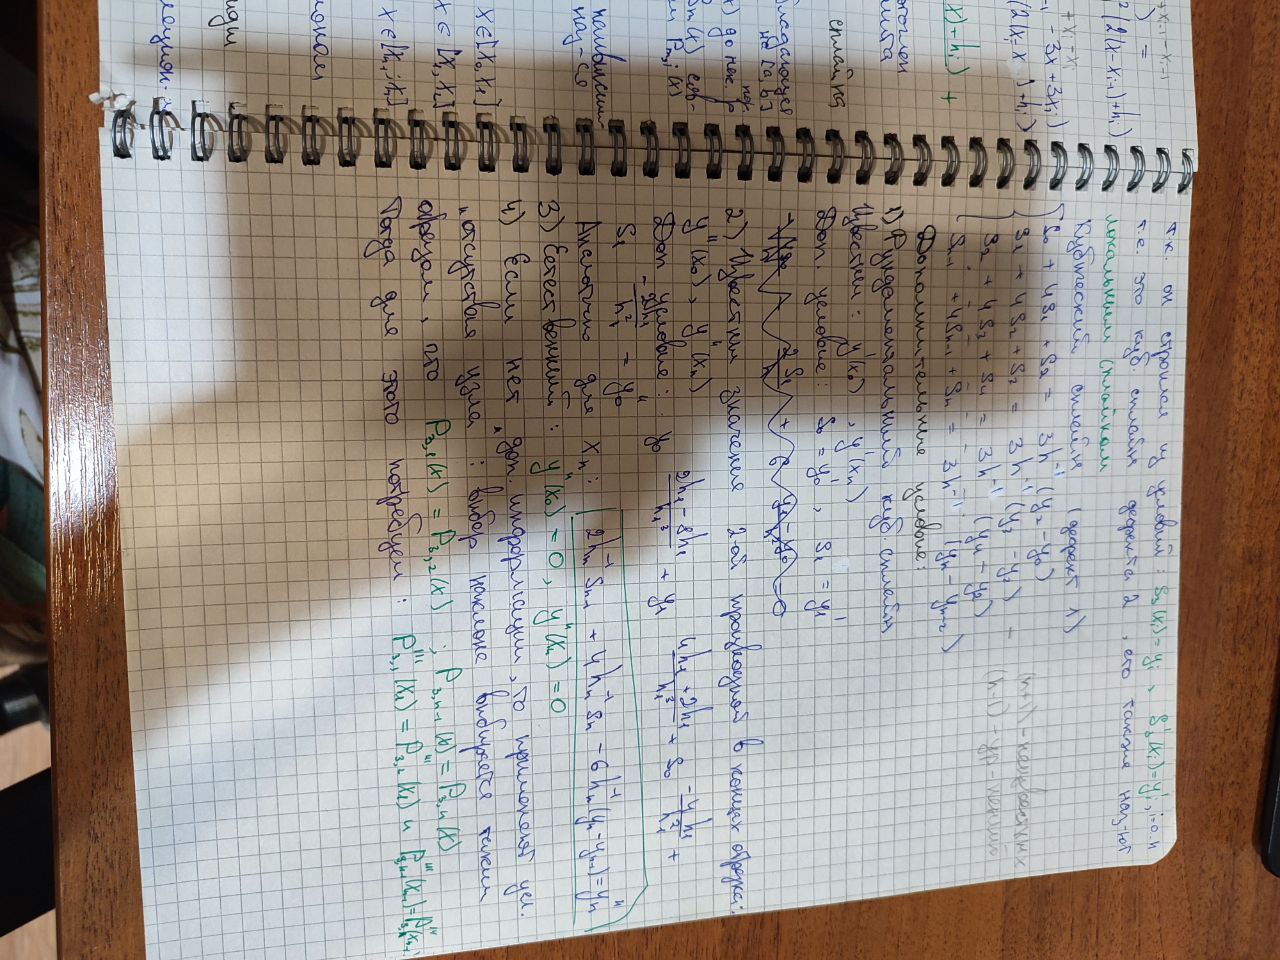 + x_{i-1} - x_{i-1}
) =
² (2(x - x_{i-1}) + h_i)
+ x_i - x_i
- 3x + 3x_i)
+ h_i)
x) + h_i) +
сплайна
бладающее
на [a, b]
x) до нек.
S_m(x) сов-
P_{m,i}(x)
наз-ся
x ∈ [x_0, x_1]
x ∈ [x_1, x_2]
x ∈ [x_{n-1}; x_n]
т.к. он строился из условий: S_3(x_i) = y_i , S'_3(x_i) = y'_i , i=0..n
т.е. это куб. сплайн дефекта 2 , его также наз-ют
локальным сплайном
Кубический сплайн (дефект 1)
S_0 + 4S_1 + S_2 = 3h^{-1} (y_2 - y_0)
S_1 + 4S_2 + S_3 = 3h^{-1} (y_3 - y_1) - (n+1) - неизвестных
S_2 + 4S_3 + S_4 = 3h^{-1} (y_4 - y_2) (n-1) - ур-нений
+ 4S_{n-1} + S_n = 3h^{-1} (y_n - y_{n-2})
Дополнительные условие:
1) Фундаментальный куб. сплайн
Известны: y'(x_0) , y'(x_n)
Доп. условие: S_0 = y'_0 , S_1 = y'_1
2) Известны значения 2-ой производной в концах отрезка:
y''(x_0) , y''(x_n)
Доп условие: y_0 + y_1 (4h_1 + 2h_1)/h_1^3 + S_0 (-4h_1)/h_1^2 +
S_1 (-2h_1)/h_1^2 = y''_0
Аналогично для x_n: 2h_n^{-1} S_{n-1} + 4h_n^{-1} S_n - 6h_n^{-1} (y_n - y_{n-1}) = y''_n
3) Естественный: y''(x_0) = 0 , y''(x_n) = 0
4) Если нет доп. информации, то применяют усл.
„отсутствия узла“ : выбор наклона выбирается таким
образом, что P_{3,1}(x) = P_{3,2}(x) ; P_{3,n-1}(x) = P_{3,n}(x)
Тогда для этого потребуем: P'''_{3,1}(x_1) = P'''_{3,2}(x_1) и P'''_{3,n-1}(x_{n-1}) =